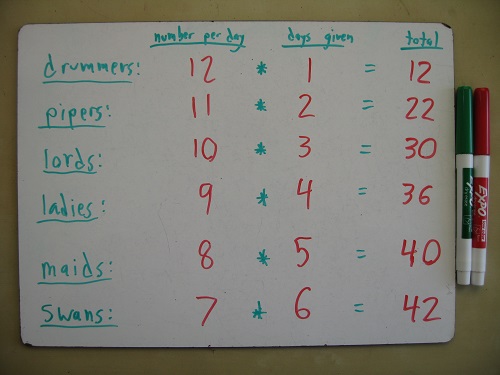 number per day days given total
drummers: 12 * 1 = 12
pipers: 11 * 2 = 22
lords: 10 * 3 = 30
ladies: 9 * 4 = 36
maids: 8 * 5 = 40
swans: 7 * 6 = 42
EXPO
EXPO